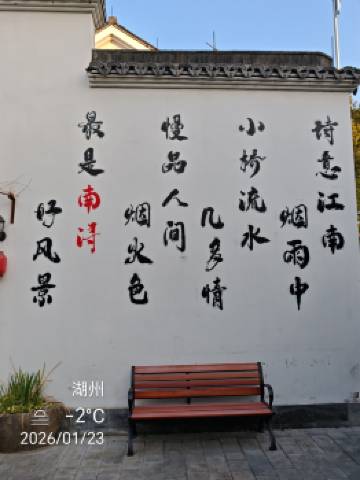 诗意江南
烟雨中
小桥流水
几多情
慢品人间
烟火色
最是南浔
好风景
湖州
-2°C
2026/01/23